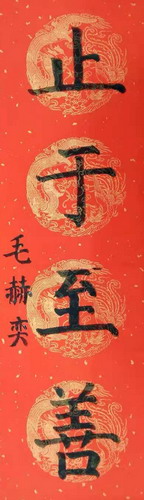 止于至善
毛赫奕